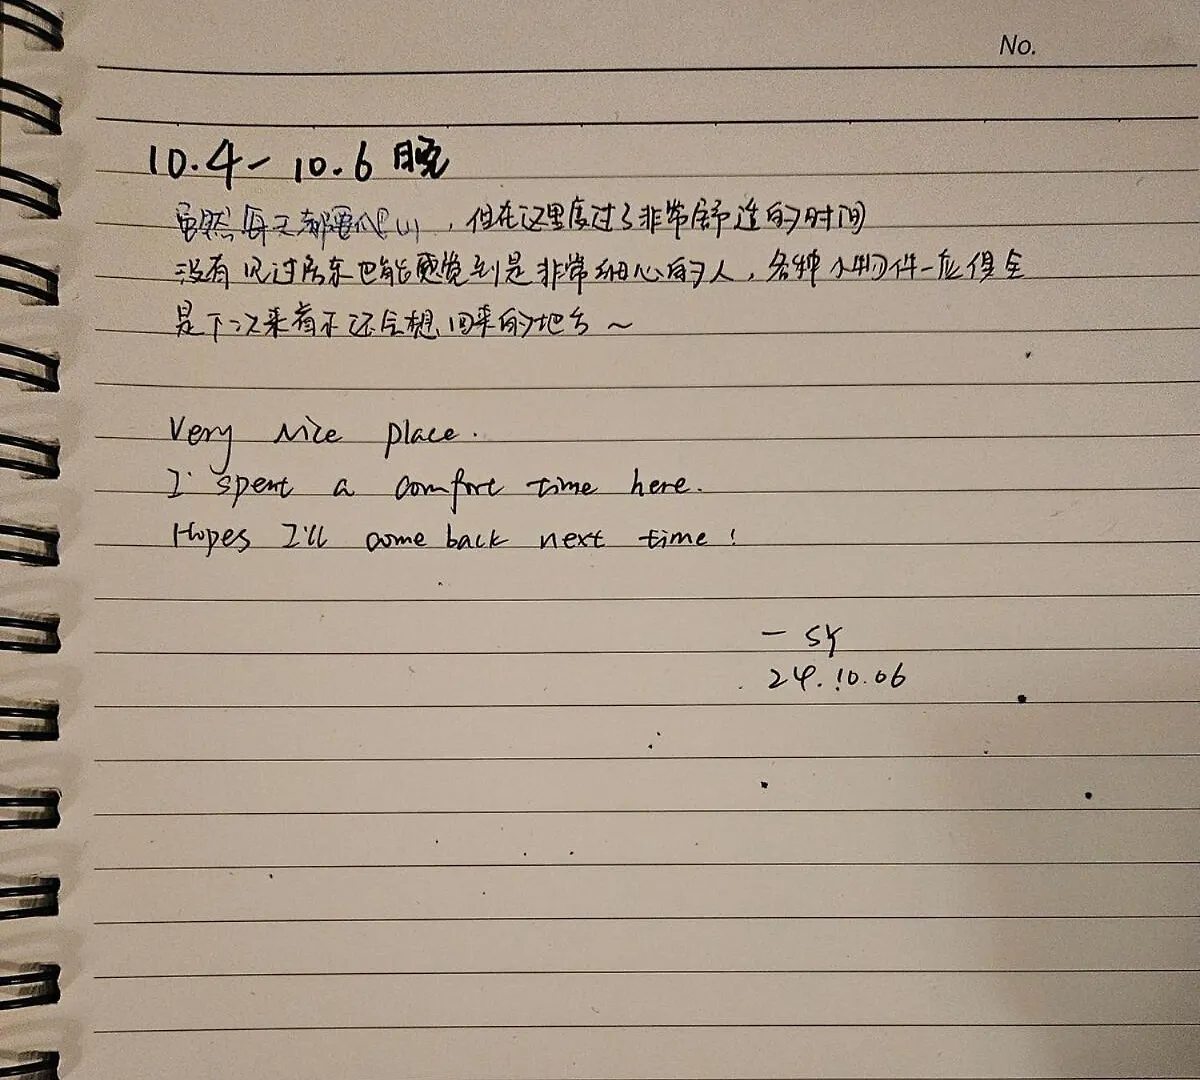 No.
10.4 - 10.6 晚
虽然每天都要爬山，但在这里度过了非常舒适的时间
没有见过房东也能感觉到是非常细心的人，各种小物件一应俱全
是下次来首尔还会想回来的地方～
Very nice place.
I spent a comfort time here.
Hopes I'll come back next time!
- SY
24.10.06